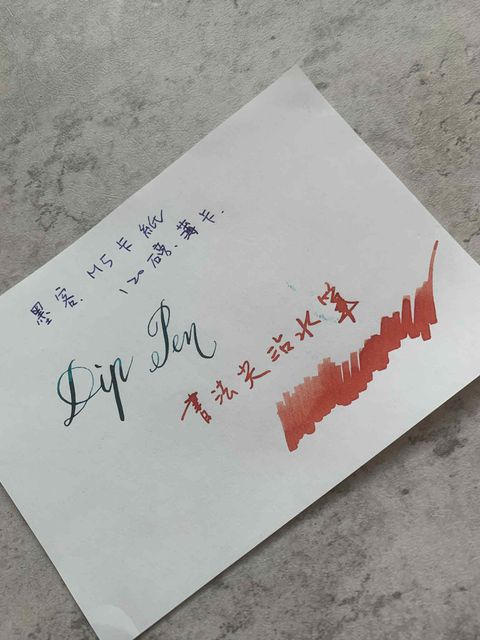 墨客 M5卡紙
120磅.薄卡.
Dip Pen
書法尖沾水筆